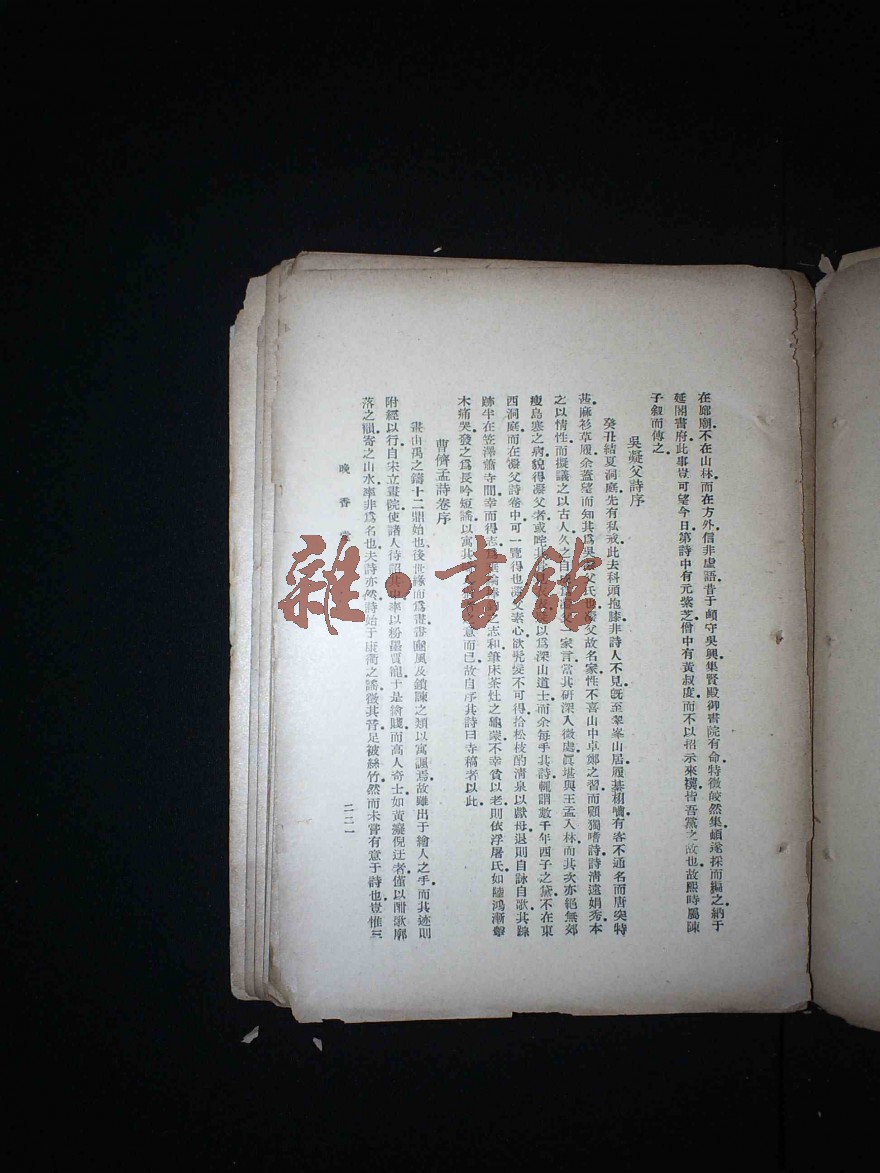 在廊廟不在山林而在方外信非虛語昔于頔守吳興集賢殿御書院有命特徵皎然集頔遂採而編之納于
延閣書府此事豈可望今日第詩中有元紫芝僧中有黃叔度而不以招示來禩皆吾黨之故也故熙時屬陳
子叙而傳之
吳凝父詩序
癸丑結夏洞庭先有私戒此去科頭抱膝非詩人不見旣至翠峯山居履綦栩有客不通名而唐突特
甚麻衫草履余蓋望而知其爲吳凝父氏也凝父故名家性不喜山中卓鄭之習而顧獨嗜詩詩清遠娟秀本
之以情性而擬議之以古人久之自父一家言當其硏深入微處眞堪與王孟入林而其次亦絕無郊
瘦島寒之病貌得凝父者或咤其以爲深山道士而余每手其詩輒謂數千年西子之黛不在東
西洞庭而在凝父詩卷中可一覽得也凝父素心欲髡髮不可得拾松枝酌清泉以獻母退則自詠自歌其踪
跡半在笠澤蕭寺間幸而得志之志和筆床茶灶之龜蒙不幸貧以老則依浮屠氏如陸鴻漸擊
木痛哭發之爲長吟短謠以寓其之意而已故自序其詩曰寺稿者以此
曹儕孟詩卷序
畫山禹之鑄十二鼎始也後世緣而爲畫畫豳風及鎖諫之類以寓諷焉故雖出于繪人之手而其迹則
附經以行自宋立畫院使諸人待詔其中率以粉墨賈寵于是繪賤而高人奇士如黃癡倪迂者僅以酣歌廓
落之韻寄之山水率非爲名也夫詩亦然詩始于康衢之謠微其音足被絲竹然而未嘗有意于詩也豈惟三
晚香堂
二二一
雜·書館